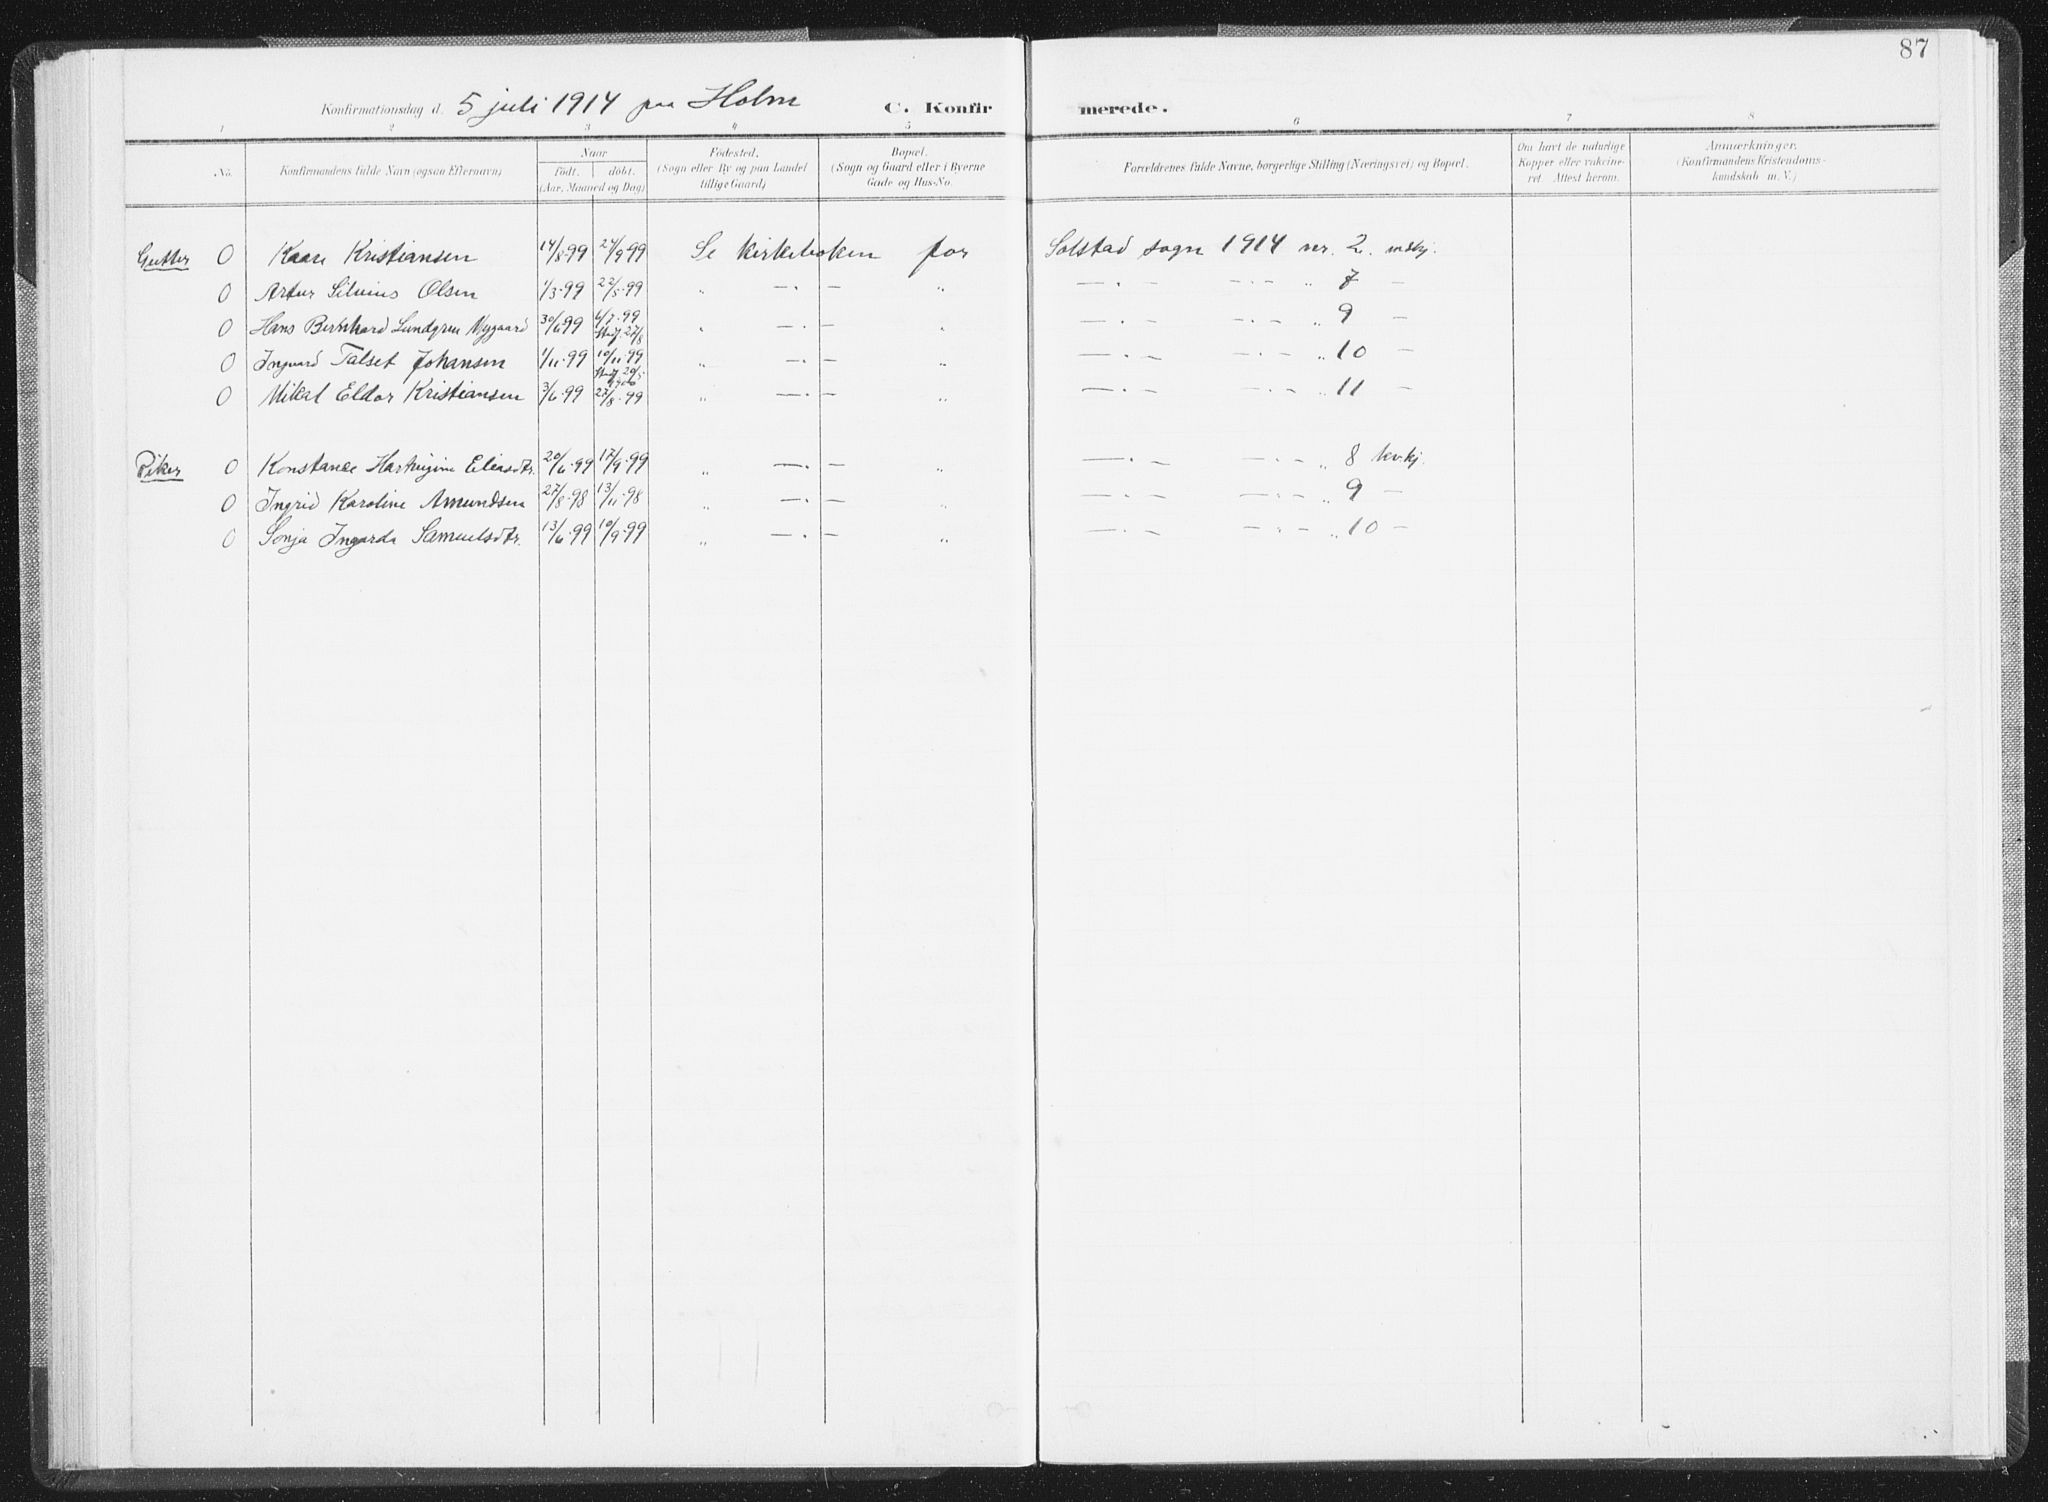 87
Konfirmationsdag d. 5 juli 1914 paa Holm C. Konfir merede.
1 2 3 4 5 6 7 8
No. Konfirmandens fulde Navn (ogsaa Efternavn) Naar født. døbt. (Aar, Maaned og Dag) Fødested. (Sogn eller By og paa Landet tillige Gaard) Bopæl. (Sogn og Gaard eller i Byerne Gade og Hus-No. Forældrenes fulde Navne, borgerlige Stilling (Næringsvei) og Bopæl. Om havt de naturlige Kopper eller vakcineret. Attest herom. Anmærkninger. (Konfirmandens Kristendomskundskab m. V.)
Gutter 0 Kaare Kristiansen 14/8-99 24/9-99 Se kirkeboken for Solstad sogn 1914 nr. 2 mskj.
0 Artur Silvius Olsen 1/3-99 22/5-99 „ —·— „ —·— —·— „ 7 —
0 Hans Bernhard Lundgren Nygaard 30/6-99 6/7-99 27/8 „ —·— „ —·— —·— „ 9 —
0 Ingvard Talset Johansen 1/11-99 10/11-99 20/5 1900 „ —·— „ —·— —·— „ 10 —
0 Mikal Eldor Kristiansen 3/6-99 27/8-99 „ —·— „ —·— —·— „ 11 —
Piker 0 Konstanse Hartvigine Eliasdtr. 20/6-99 17/9-99 „ —·— „ —·— —·— „ 8 kvkj.
0 Ingrid Karoline Amundsen 27/8-98 13/11-98 „ —·— „ —·— —·— „ 9 —
0 Sonja Ingarda Samuelsdtr. 13/6-99 10/9-99 „ —·— „ —·— —·— „ 10 —